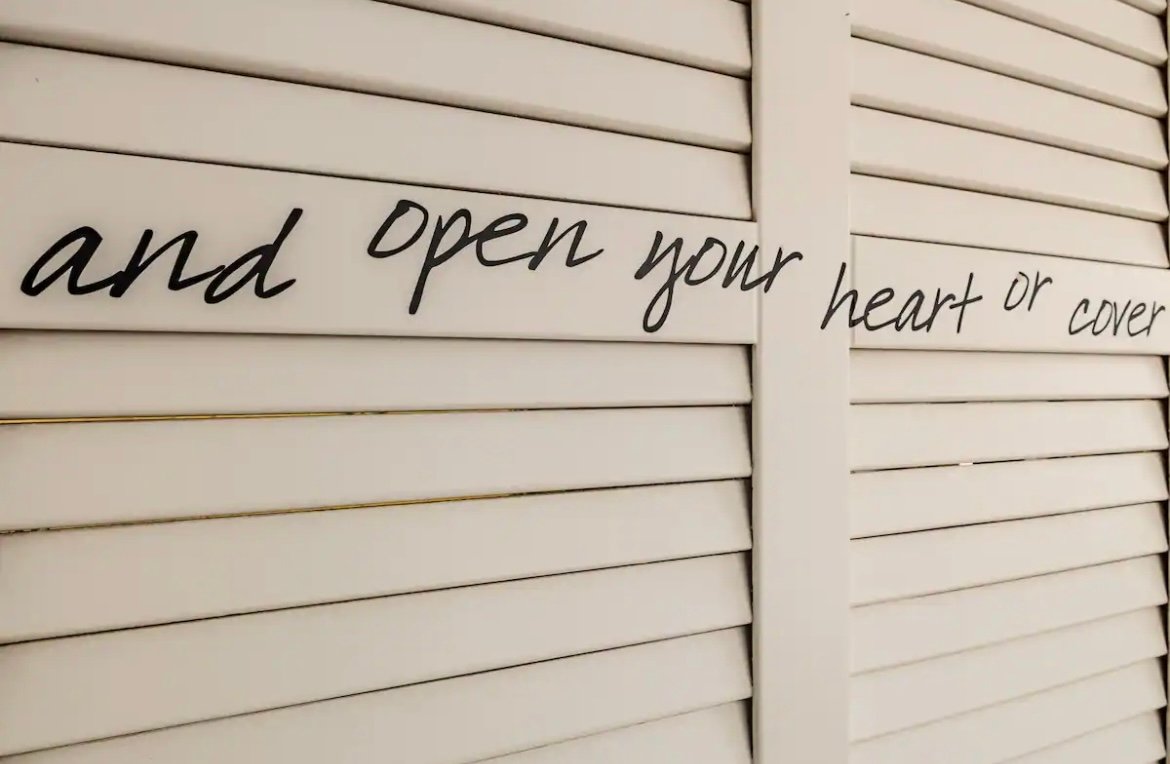 and open your heart or cover